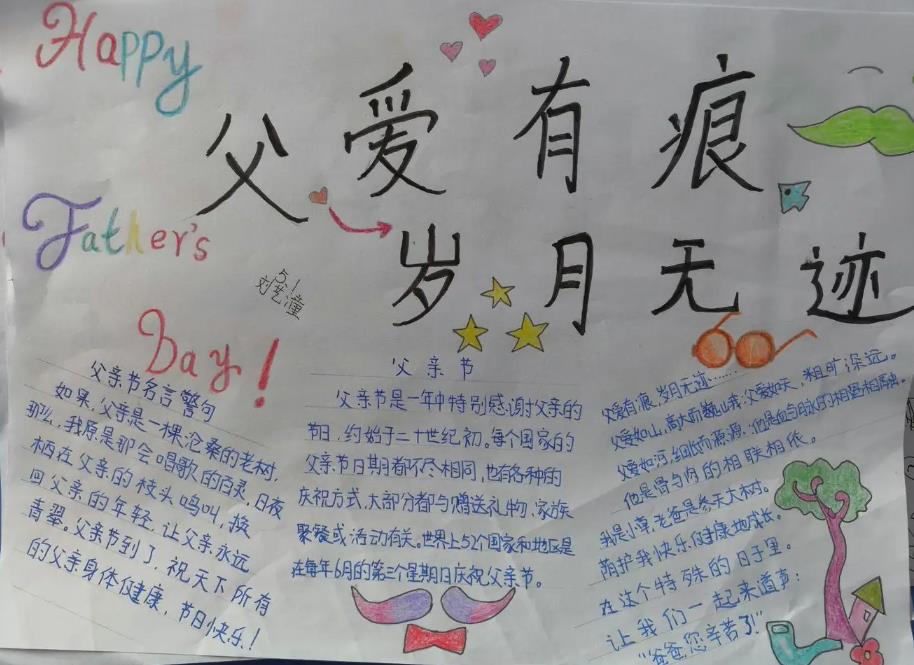 Happy
Father's
Day!
父爱有痕
岁月无迹
5.1
刘艺潼
父亲节名言警句
如果,父亲是一棵沧桑的老树,
那么,我原是那会唱歌的百灵,日夜
栖在父亲的枝头鸣叫,换
回父亲的年轻,让父亲永远
青翠。父亲节到了,祝天下所有
的父亲身体健康,节日快乐!
父亲节
父亲节是一年中特别感谢父亲的
节日,约始于二十世纪初。每个国家的
父亲节日期都不尽相同,也有各种的
庆祝方式,大部分都与赠送礼物、家族
聚餐或活动有关。世界上52个国家和地区是
在每年6月的第三个星期日庆祝父亲节。
父爱有痕,岁月无迹……
父爱如山,高大而巍峨;父爱如天,粗旷深远。
父爱如河,细长而源源,他是血与脉的相遇相融。
他是骨与肉的相联相依。
我是小草,老爸是参天大树。
荫护我快乐健康地成长。
在这个特殊的日子里。
让我们一起来道声:
"爸爸,您辛苦了!"